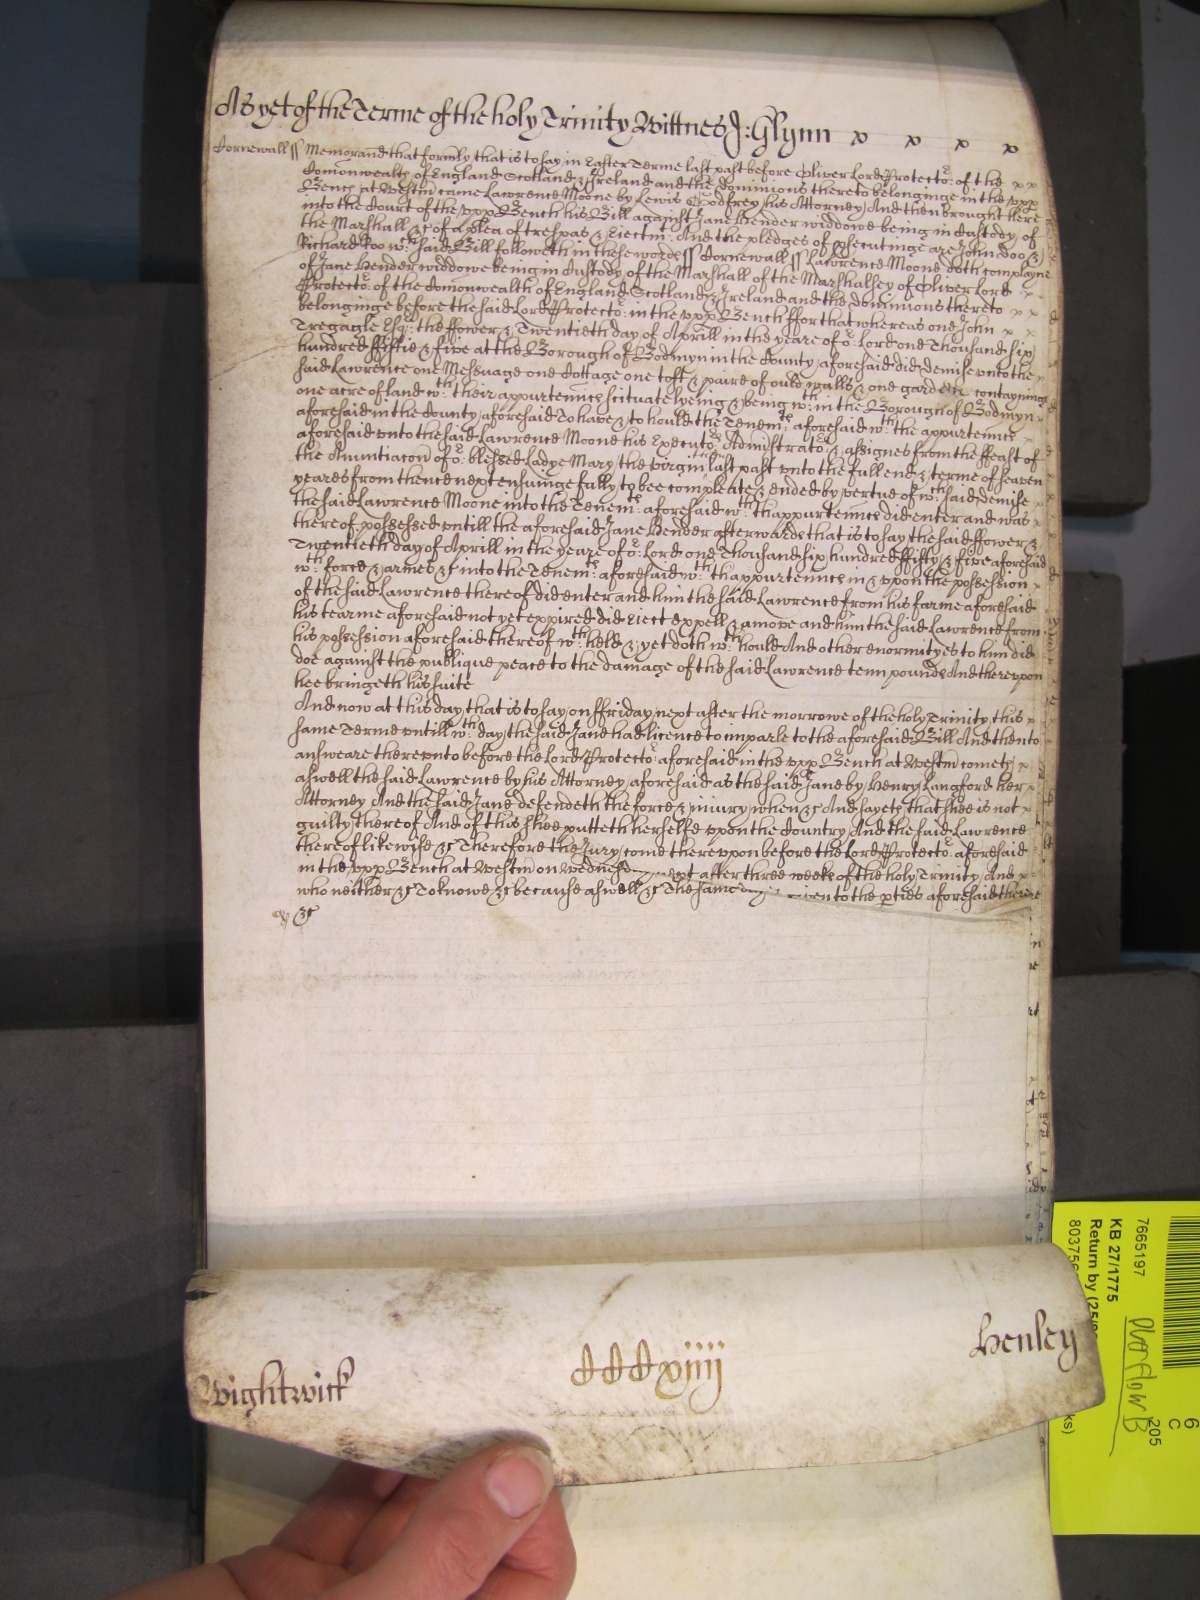 As yet of the Terme of the holy Trinity Wittnes J: Glynn x x x x
Cornewall ss Memorand that formly that is to say in Easter Terme last past before Oliver Lord Protector: of the x x
Comonwealth of England Scotland & Ireland and the dominions thereto belonginge in the vpp
Bench at Westm came Lawrence Moone by Lewis Godfrey his Attorney And then brought here
into the Court of the vpp Bench his Bill against Jane Hender widdowe being in Custody of
the Marshall &c of a plea of trespas & Eiectm: And the pledges of psecutinge are John doo &
Richard Roo wch said Bill followeth in these words ss Cornewall ss Lawrence Moone doth complayne
of Jane Hender widdowe being in Custody of the Marshall of the Marshalsey of Oliver Lord x
Protector: of the Comonwealth of England Scotland & Ireland and the dominions thereto x x
belonginge before the said Lord Protector: in the vpp Bench ffor that whereas one John x x
Tregagle Esqr: the ffower & Twentieth day of Aprill in the yeare of or: Lord one Thousand six
hundred ffiftie & five at the Borough of Bodmyn in the County aforesaid did demise vnto the
said Lawrence one Messuage one Cottage one toft & paire of ould walls & one garden contayninge
one acre of land wth: their appurtennces scituate lyeing & being wth:in the Borough of Bodmyn
aforesaid in the County aforesaid To have & to hould the Tenemts: aforesaid wth: the appurtennces
aforesaid vnto the said Lawrence Moone his Executors: Admistrators: & assignes from the ffeast of
the Anuntiacon of or: blessed Ladye Mary the virgin last past vnto the full end & terme of seaven
yeares from thence next ensuinge fully to bee compleate & ended by vertue of wch: said demise x
the said Lawrence Moone into the Tenemts: aforesaid wth: thappurtennces did enter and was x
thereof possessed vntill the aforesaid Jane Hender afterwards that is to say the said ffower &
Twentieth day of Aprill in the yeare of or: Lord one Thousand six hundred ffifty & five aforesaid
wth: force & armes &c into the Tenemts: aforesaid wth: thappurtennces in & vpon the possession x
of the said Lawrence thereof did enter and him the said Lawrence from his farme aforesaid
his tearme aforesaid not yet expired did Eiect expell & amove and him the said Lawrence from
his possession aforesaid thereof wth: held & yet doth wth: hould And other enormityes to him did
doe against the publique peace to the damage of the said Lawrence tenn pounds And therevpon
hee bringeth his suite
And now at this day that is to say on ffriday next after the morrowe of the holy Trinity this x
same Terme vntill wch: day the said Jane had licence to imparle to the aforesaid Bill And then to
answeare therevnto before the Lord Protector: aforesaid in the vpp Bench at Westm cometh x
aswell the said Lawrence by his Attorney aforesaid as the said Jane by Henry Langford her x
Attorney And the said Jane defendeth the force & iniury when &c And sayeth that shee is not x
guilty thereof And of this shee putteth herselfe vpon the Country And the said Lawrence
thereof likewise &c Therefore the Jury come therevpon before the Lord Protector: aforesaid
in the vpp Bench at Westm on Wednesd next after three weeks of the holy Trinity And x
who neither &c To knowe &c because aswell &c The same to the pties aforesaid there
&c
Wightwick
CCCxiiii
Henley
7665197
KB 27/1775
Return by (25/
80375
Overflow B
205
6
C
ks)